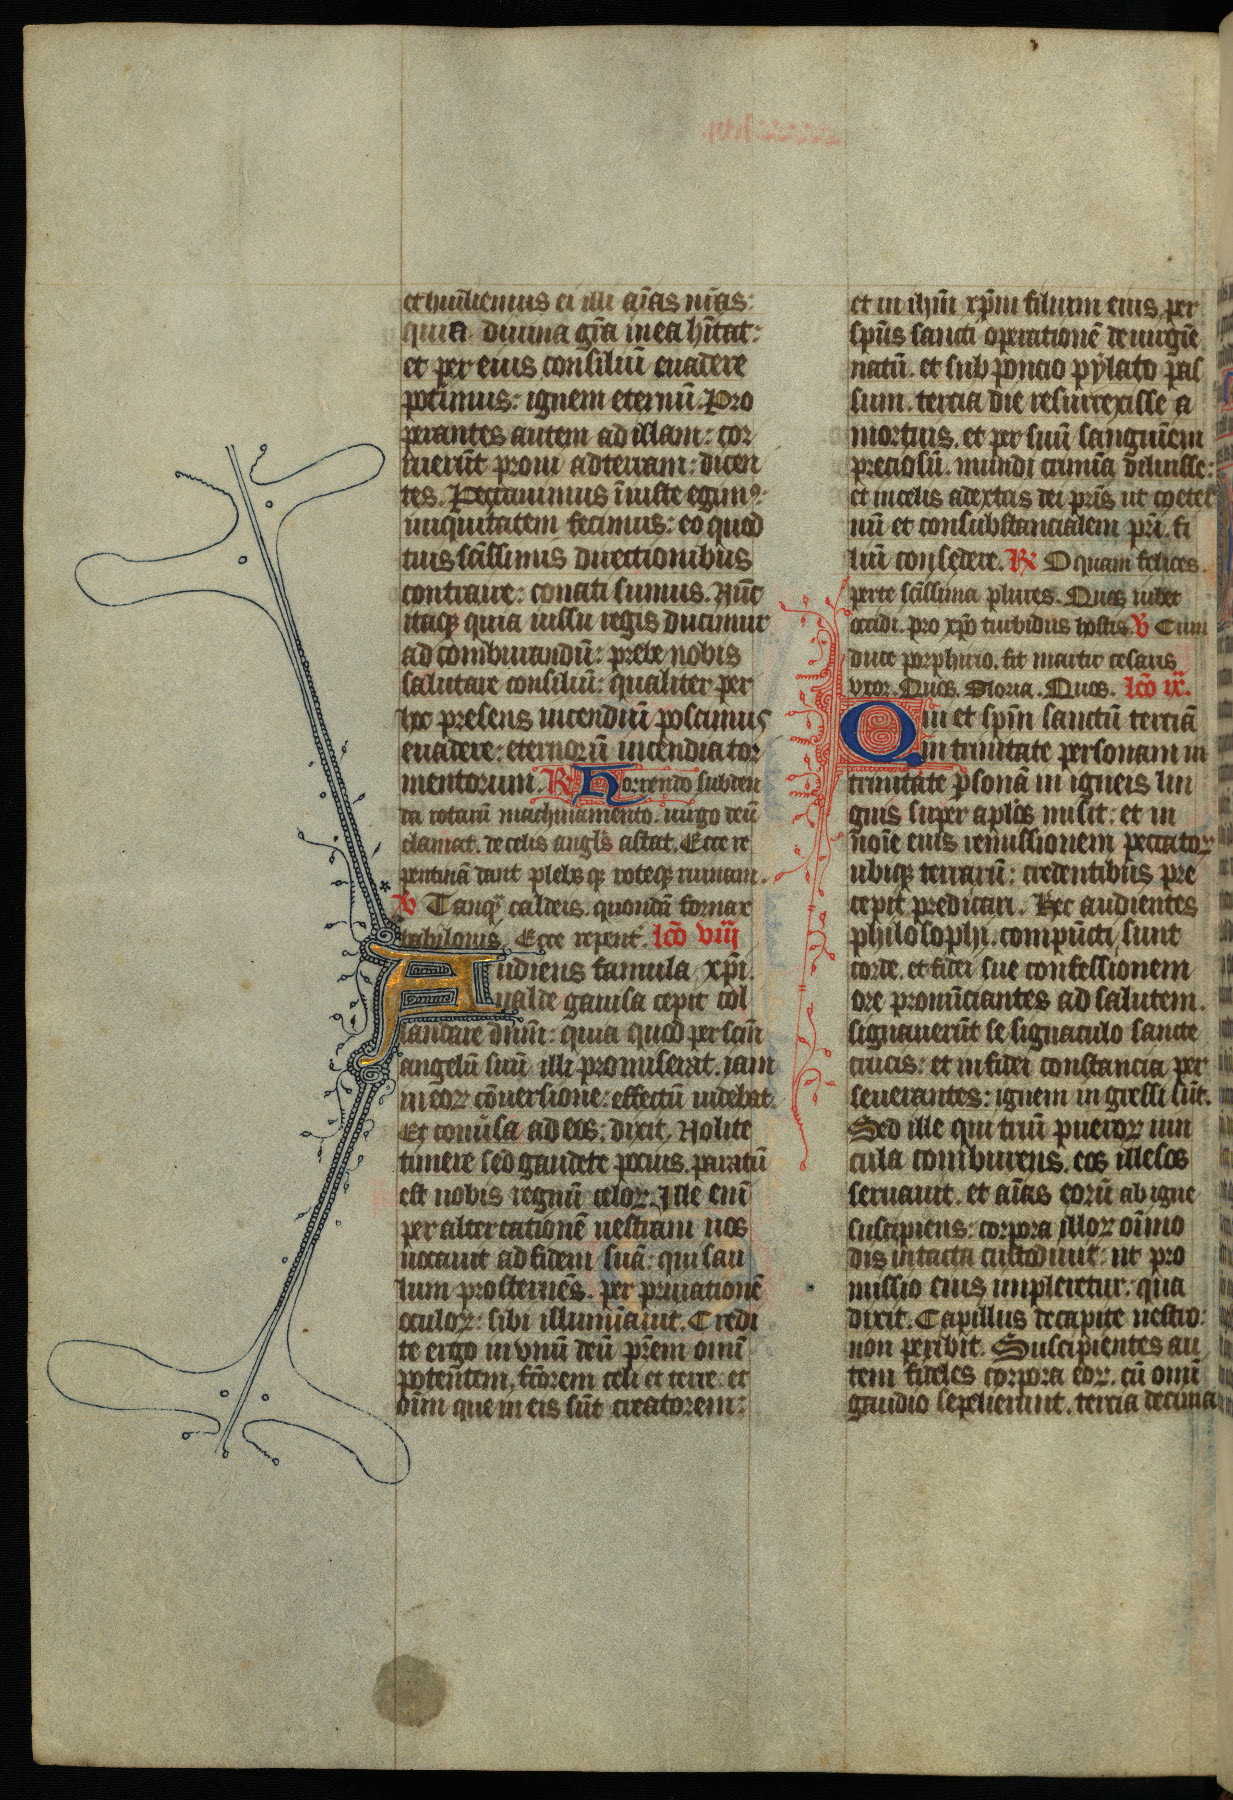 et humiliemus ei illi aīas nr̄as:
quia diuina gr̄a in ea hītat:
et per eius consiliū euadere
potimus: ignem eternū. Pro
perantes autem ad illam: cor
ruerūt proni ad terram: dicen
tes. Peccauimus īniuste egimꝰ:
iniquitatem fecimus: eo quod
tuis sc̄issimis directionibus
contraire: conati sumus. Nūc
itaqꝫ quia iussu regis ducimur
ad comburandū: prebe nobis
salutare consiliū: qualiter per
hec presens incendiū possimus
euadere: eternorū incendia tor
mentorum. R Horrendo subden
da rotarū machinamento. uirgo deū
clamat. de celis angl̄s astat. Ecce re
pentinā dant plebs qꝫ roteqꝫ ruinam.
V Tanqꝫ caldeis. quondā fornax
babilonis. Ecce repent̄. lc̄o viij
Audiens famula xp̄i.
ualde gauisa cepit col
laudare dn̄m: quia quod per sc̄m
angelū suū illi promiserat. iam
in eoꝝ cōuersione: effectū uidebat.
Et conuersa ad eos: dixit. Nolite
timere sed gaudete pocius. paratū
est nobis regnū celoꝝ. Ille enī
per altercationē uestram uos
uocauit ad fidem suā: qui sau
lum prosternēs. per priuationē
oculoꝝ: sibi illumīauit. Credi
te ergo in vnū deū pr̄em omī
potētem, fc̄orem celi et terre: et
oīm que in eis sūt creatorem:
et in ih̄m xp̄m filium eius per
sp̄us sancti operationē de uirgīe
natū. et sub poncio pylato pas
sum. tercia die resurrexisse a
mortuis. et per suū sanguinem
preciosū. mundi crimīa diluisse:
et in celis ad extris dei pr̄is ut coeter
nū et consubstancialem pr̄i. fi
liū consedere. R O quam felices.
perte sc̄issima plures. Quos iubet
occidi. pro xp̄o turbidus hostis. V Cum
duce porphirio. fit martir cesaris
vxor. Quos. Gloria. Quos. lc̄o ix.
Qui et sp̄m sanctū terciā
in trinitate personam in
trinitate p̄sonā in igneis lin
guis super aplōs misit: et in
noīe eius remissionem peccatoꝝ
ubiqꝫ terrarū: credentibus pre
cepit predicari. Hec audientes
philosophi. compūcti sunt
corde. et fidei sue confessionem
ore pronūciantes ad salutem.
signauerūt se signaculo sancte
crucis: et in fidei constancia per
seuerantes: ignem ingressi sūt.
Sed ille qui triū pueroꝝ uin
cula comburens. eos illesos
seruauit. et aīas eorū ab igne
suscipiens: corpora illoꝝ oīmo
dis intacta custodiuit: ut pro
missio eius impleretur: qua
dixit. Capillus de capite uestro:
non peribit. Suscipientes au
tem fideles corpora eoꝝ. cū omī
gaudio sepelierunt. tercia decima